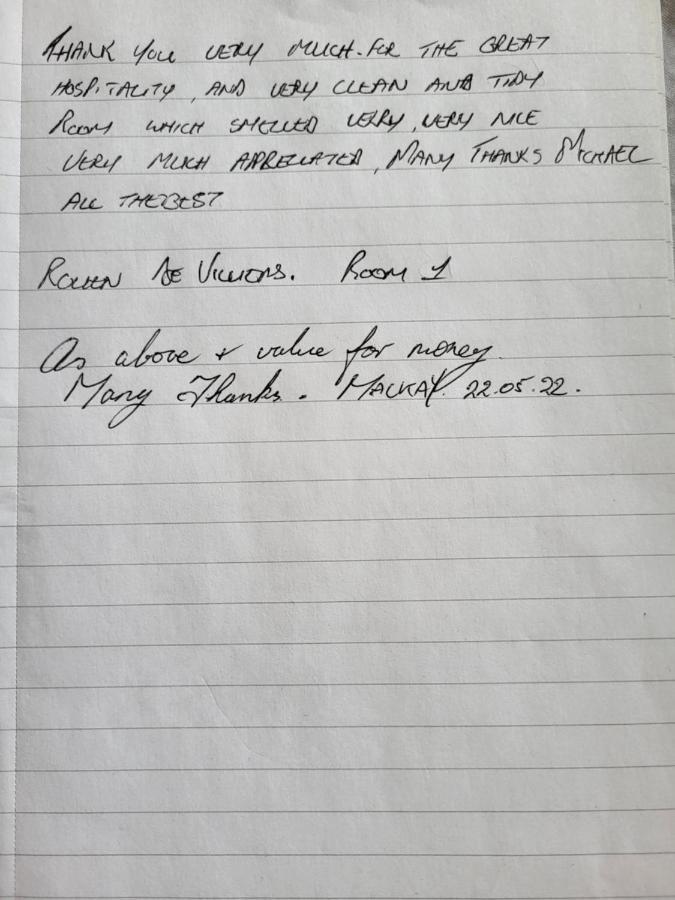 THANK YOU VERY MUCH. FOR THE GREAT
HOSPITALITY, AND VERY CLEAN AND TIDY
ROOM WHICH SMELLED VERRY, VERY NICE
VERY MUCH APPRECIATED, MANY THANKS MICHAEL
ALL THE BEST
DE Room 1
As above + value for money.
Many Thanks. MACKAY. 22.05.22.